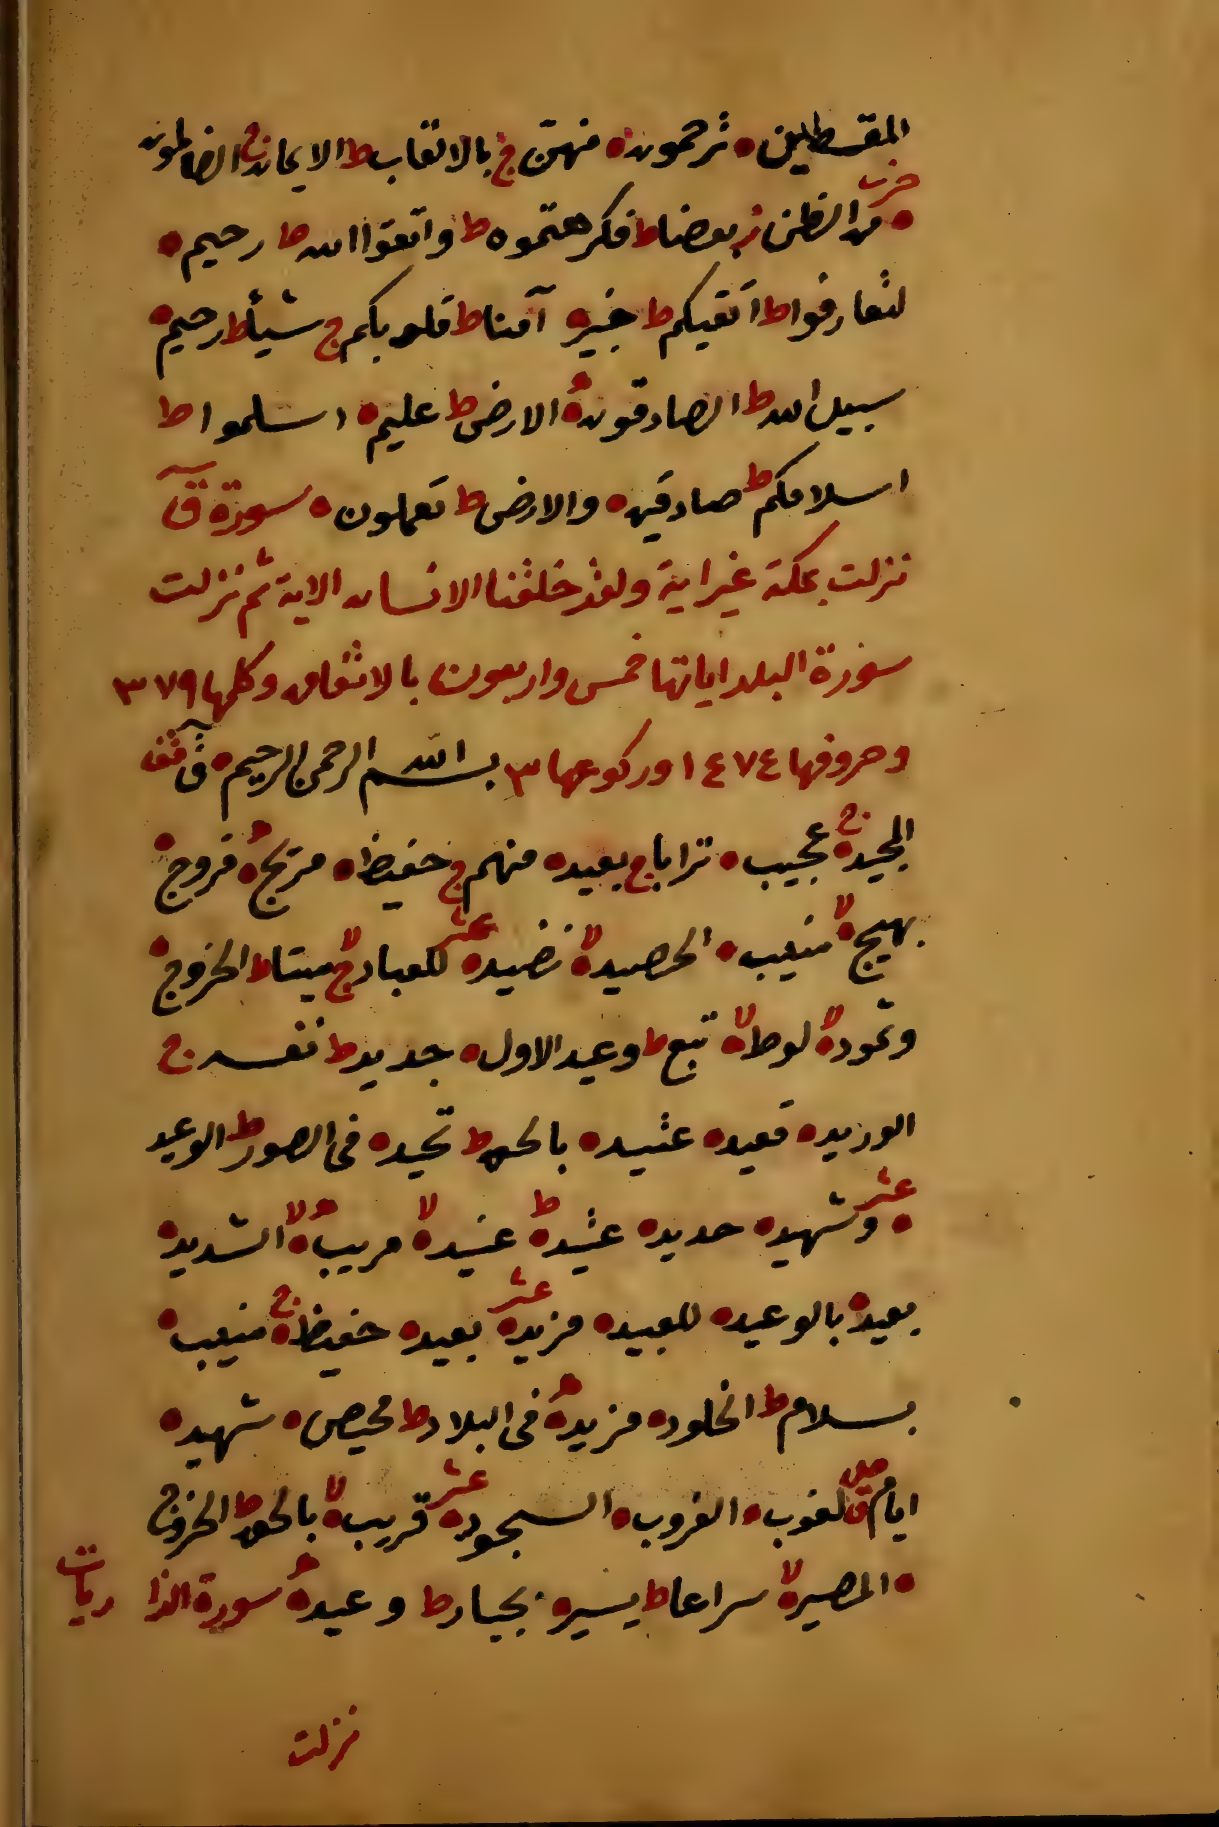 المقسطين ۰ ترحمون ۰ منهن ج بالالقاب ط الايمان ج الظالمون
حزب
۰ من الظن ز بعضا ط فكرهتموه ط واتقوا الله ط رحيم ۰
لتعارفوا ط اتقيكم ط خبير ۰ آمنا ط قلوبكم ج شيأ ط رحيم ۰
سبيل الله ط الصادقون ۰ الارض ط عليم ۰ اسلموا ط
اسلامكم ط صادقين ۰ والارض ط تعملون ۰ سورة قۤ
نزلت بمكة غير اية ولقد خلقنا الانسان الاية ثم نزلت
سورة البلد اياتها خمس واربعون بالاتفاق وكلمها ٣٧٩
وحروفها ١٤٧٤ وركوعها ٣ بسم الله الرحمن الرحيم ۰ قۤ قف
المجيد ۰ ج عجيب ۰ ترابا ج بعيد ۰ منهم ج حفيظ ۰ مريج ۰ فروج ۰
بهيج ۰ لا منيب ۰ الحصيد ۰ لا نضيد ۰ عشر للعباد لا ج ميتا ط الخروج ۰
وثمود ۰ لا لوط ۰ لا تبع ط وعيد الاول ۰ جديد ط نفسه ج
الوريد ۰ قعيد ۰ عتيد ۰ بالحق ط تحيد ۰ فى الصور ط الوعيد
عشر
۰ وشهيد ۰ حديد ۰ عتيد ۰ ط عنيد ۰ لا مريب ۰ لا الشديد ۰
بعيد ۰ بالوعيد ۰ للعبيد ۰ مزيد ۰ عشر بعيد ۰ حفيظ ۰ ج منيب ۰
بسلام ط الخلود ۰ مزيد ۰ فى البلاد ط محيص ۰ شهيد ۰
ايام ق لغوب ۰ الغروب ۰ السجود ۰ عشر قريب ۰ لا بالحق ط الخروج
۰ المصير ۰ لا سراعا ط يسير ۰ بجبار ط وعيد ۰ سورة الذاريات
نزلت